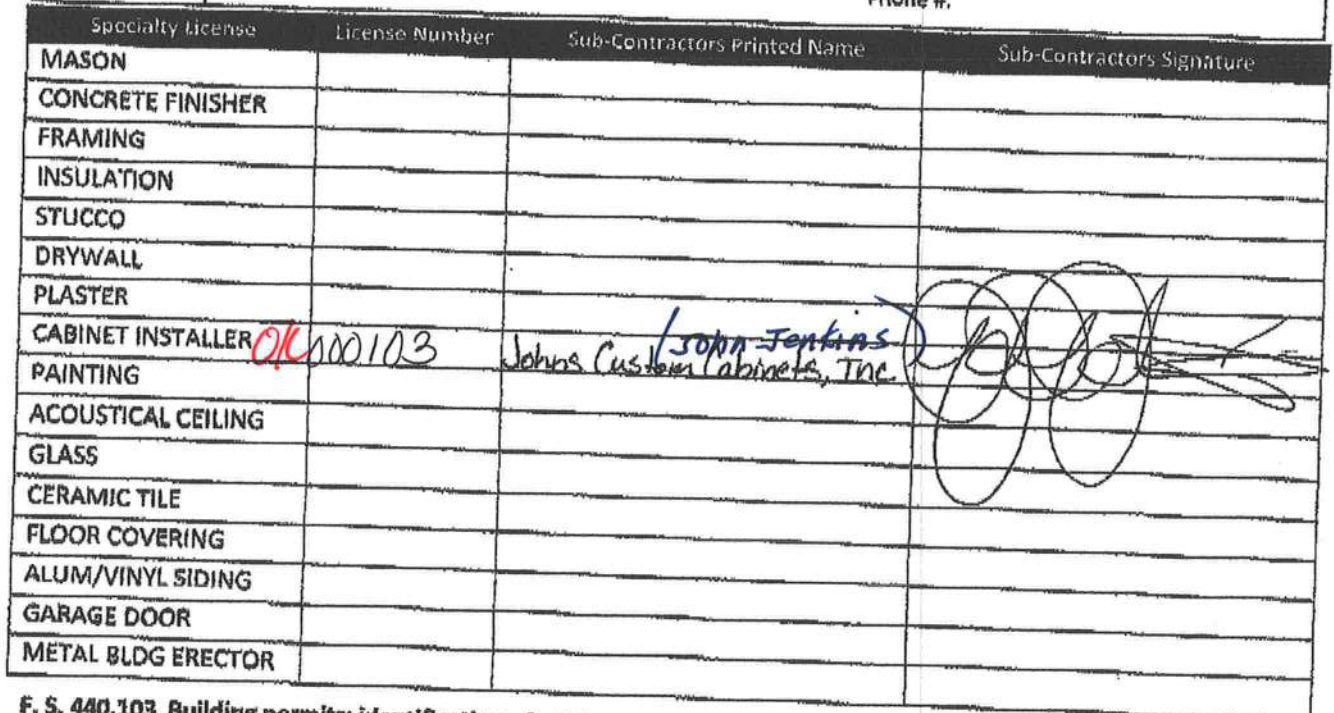 Phone #:
Specialty License License Number Sub-Contractors Printed Name Sub-Contractors Signature
MASON
CONCRETE FINISHER
FRAMING
INSULATION
STUCCO
DRYWALL
PLASTER
CABINET INSTALLER OK 000103 Johns Custom Cabinets, Inc. (John Jenkins)
PAINTING
ACOUSTICAL CEILING
GLASS
CERAMIC TILE
FLOOR COVERING
ALUM/VINYL SIDING
GARAGE DOOR
METAL BLDG ERECTOR
F. S. 440.103 Building permits; identification